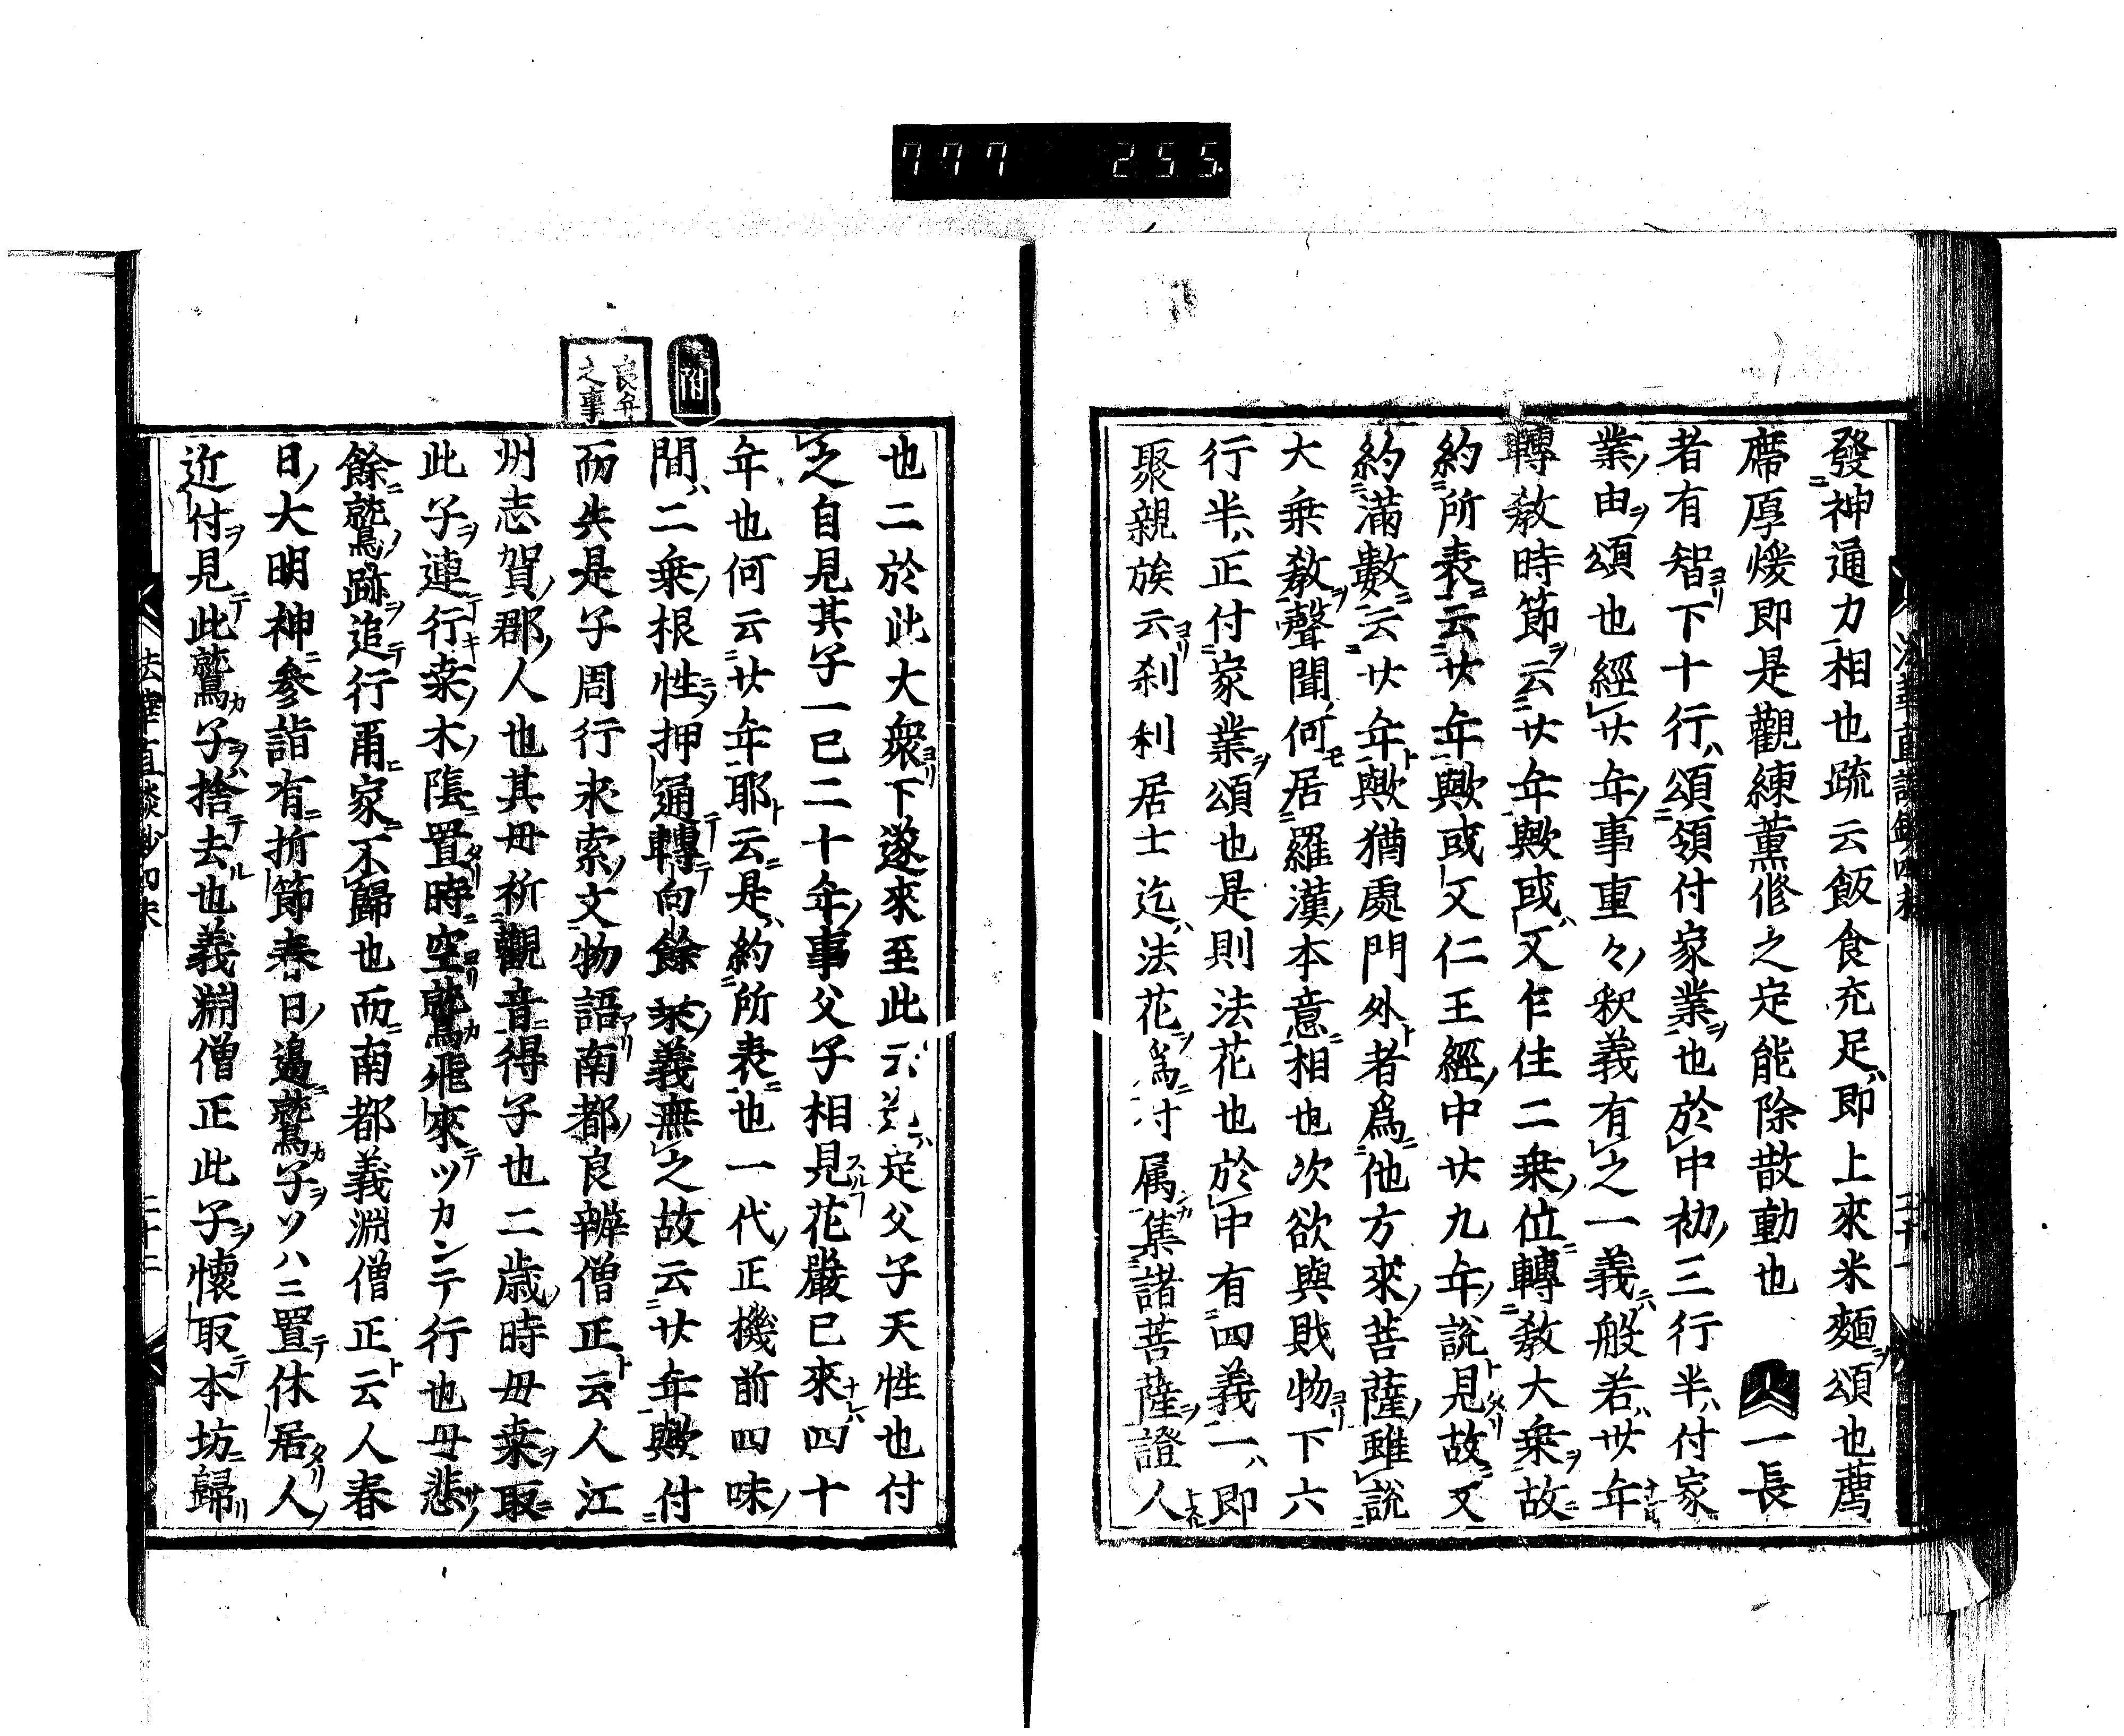 777 255.
發神通力相也疏云飯食充足即上來米麵頌也薦
席厚煖即是觀練薫修之定能除散動也 一長
者有智下十行頌領付家業也於中初三行半付家
業由頌也經廿年事重々釈義有之一義般若卅年
轉教時節云廿年歟或又乍住二乗位轉教大乗故
約所表云廿年歟或又仁王經中廿九年說見故又
約滿數云廿年歟猶處門外者爲他方來菩薩雖說
大乗教聲聞何居羅漢本意相也次欲與財物下六
行半正付家業頌也是則法花也於中有四義一即
聚親族云刹利居士迄法花爲付属集諸菩薩證人
附
良弁
之事
也二於此大衆下遂來至此云定父子天性也付
之自見其子一已二十年事父子相見花嚴已來四十
年也何云廿年耶云是約所表也一代正機前四味
間二乗根性押通轉向餘乗義無之故云廿年歟付
而失是子周行求索文物語南都良辨僧正云人江
州志賀郡人也其母祈觀音得子也二歳時母桒取
此子連行桒木陰置時空鷲飛來ツカンテ行也母悲
餘鷲跡追行甬家不歸也而南都義淵僧正云人春
日大明神參詣有折節春日邊鷲子ソハニ置休居人
近付見此鷲子捨去也義淵僧正此子懷取本坊歸